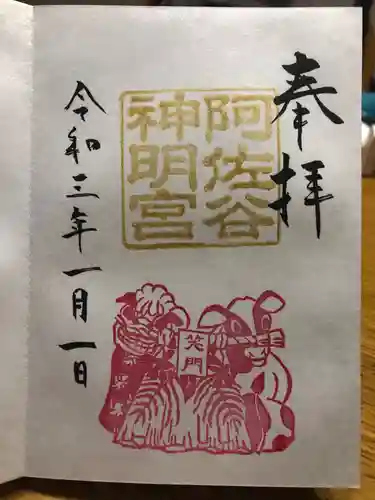 奉拝
阿佐谷
神明宮
令和三年一月一日
笑門